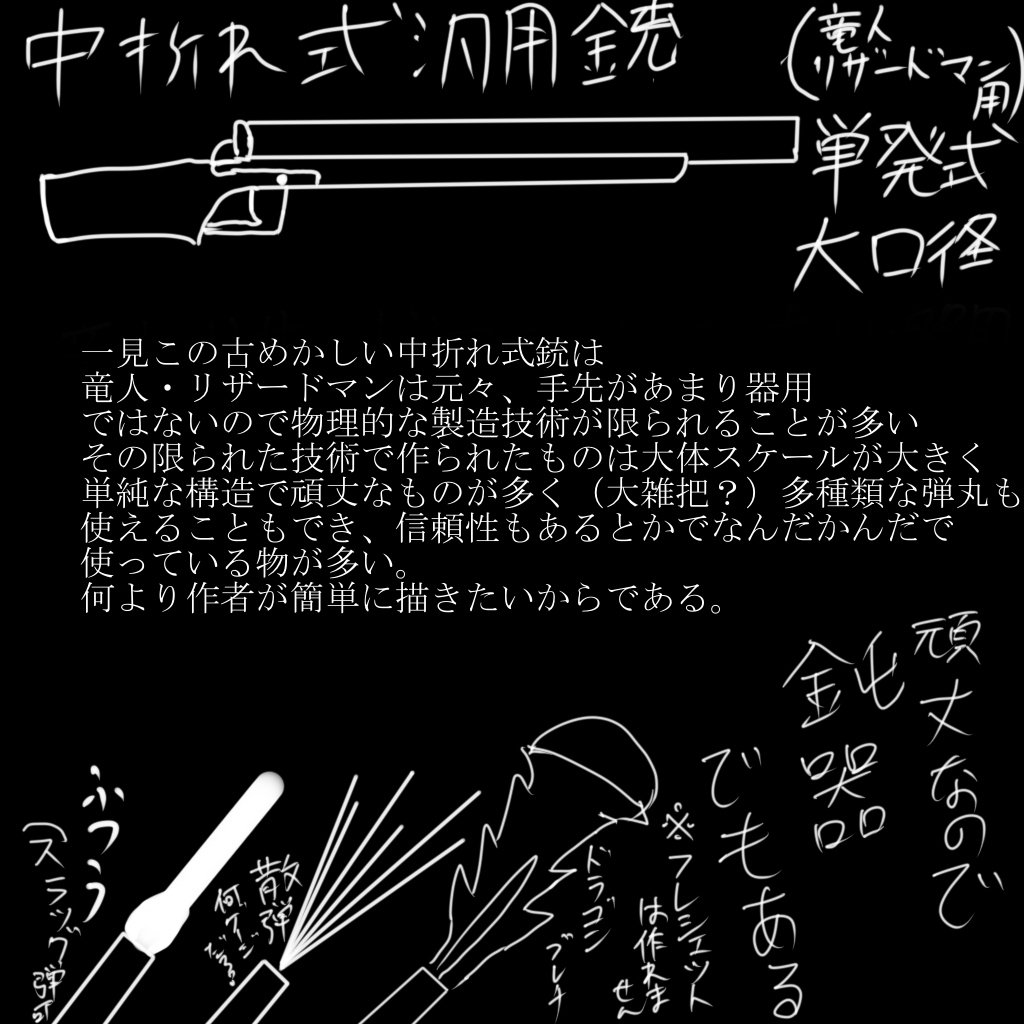 中折れ式汎用銃
(竜人
リザードマン用)
単発式
大口径
一見この古めかしい中折れ式銃は
竜人・リザードマンは元々、手先があまり器用
ではないので物理的な製造技術が限られることが多い
その限られた技術で作られたものは大体スケールが大きく
単純な構造で頑丈なものが多く（大雑把？）多種類な弾丸も
使えることもでき、信頼性もあるとかでなんだかんだで
使っている物が多い。
何より作者が簡単に描きたいからである。
頑丈なので
鈍器
でもある
ふつう
(スラッグ弾)
散弾
何ゲージだろ?
ドラゴン
ブレス
※フレシェット
は作れま
せん